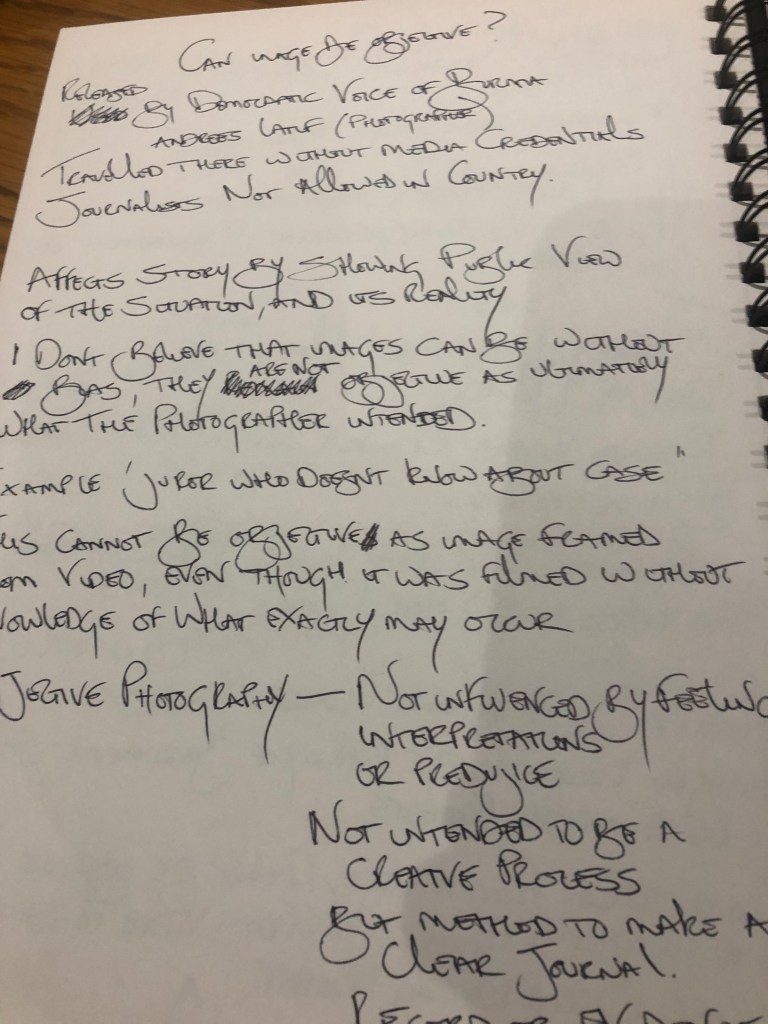 CAN IMAGE BE OBJECTIVE?
RELEASED BY DEMOCRATIC VOICE OF BURMA
ANDREES LATIF (PHOTOGRAPHER)
TRAVELLED THERE WITHOUT MEDIA CREDENTIALS
JOURNALISTS NOT ALLOWED IN COUNTRY.
AFFECTS STORY BY SHOWING PUBLIC VIEW
OF THE SITUATION, AND ITS REALITY
I DONT BELIEVE THAT IMAGES CAN BE WITHOUT
BIAS, THEY ARE NOT OBJECTIVE AS ULTIMATELY
WHAT THE PHOTOGRAPHER INTENDED.
XAMPLE "JUROR WHO DOESNT KNOW ABOUT CASE"
CANNOT BE OBJECTIVE AS IMAGE FRAMED
VIDEO, EVEN THOUGH IT WAS FILMED WITHOUT
OWLEDGE OF WHAT EXACTLY MAY OCCUR
JECTIVE PHOTOGRAPHY — NOT INFLUENCED BY FEELING
INTERPRETATIONS
OR PREDUJICE
NOT INTENDED TO BE A
CREATIVE PROCESS
BUT METHOD TO MAKE A
CLEAR JOURNAL.